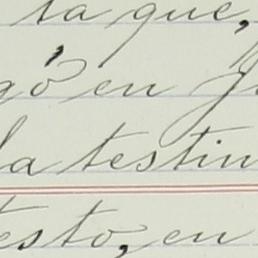 ta que,
gó en
la testim
esto, en